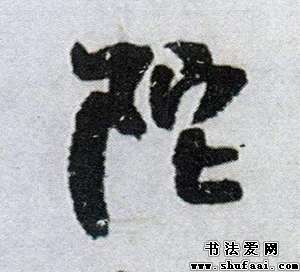 陀
书法爱网
www.shufaai.com